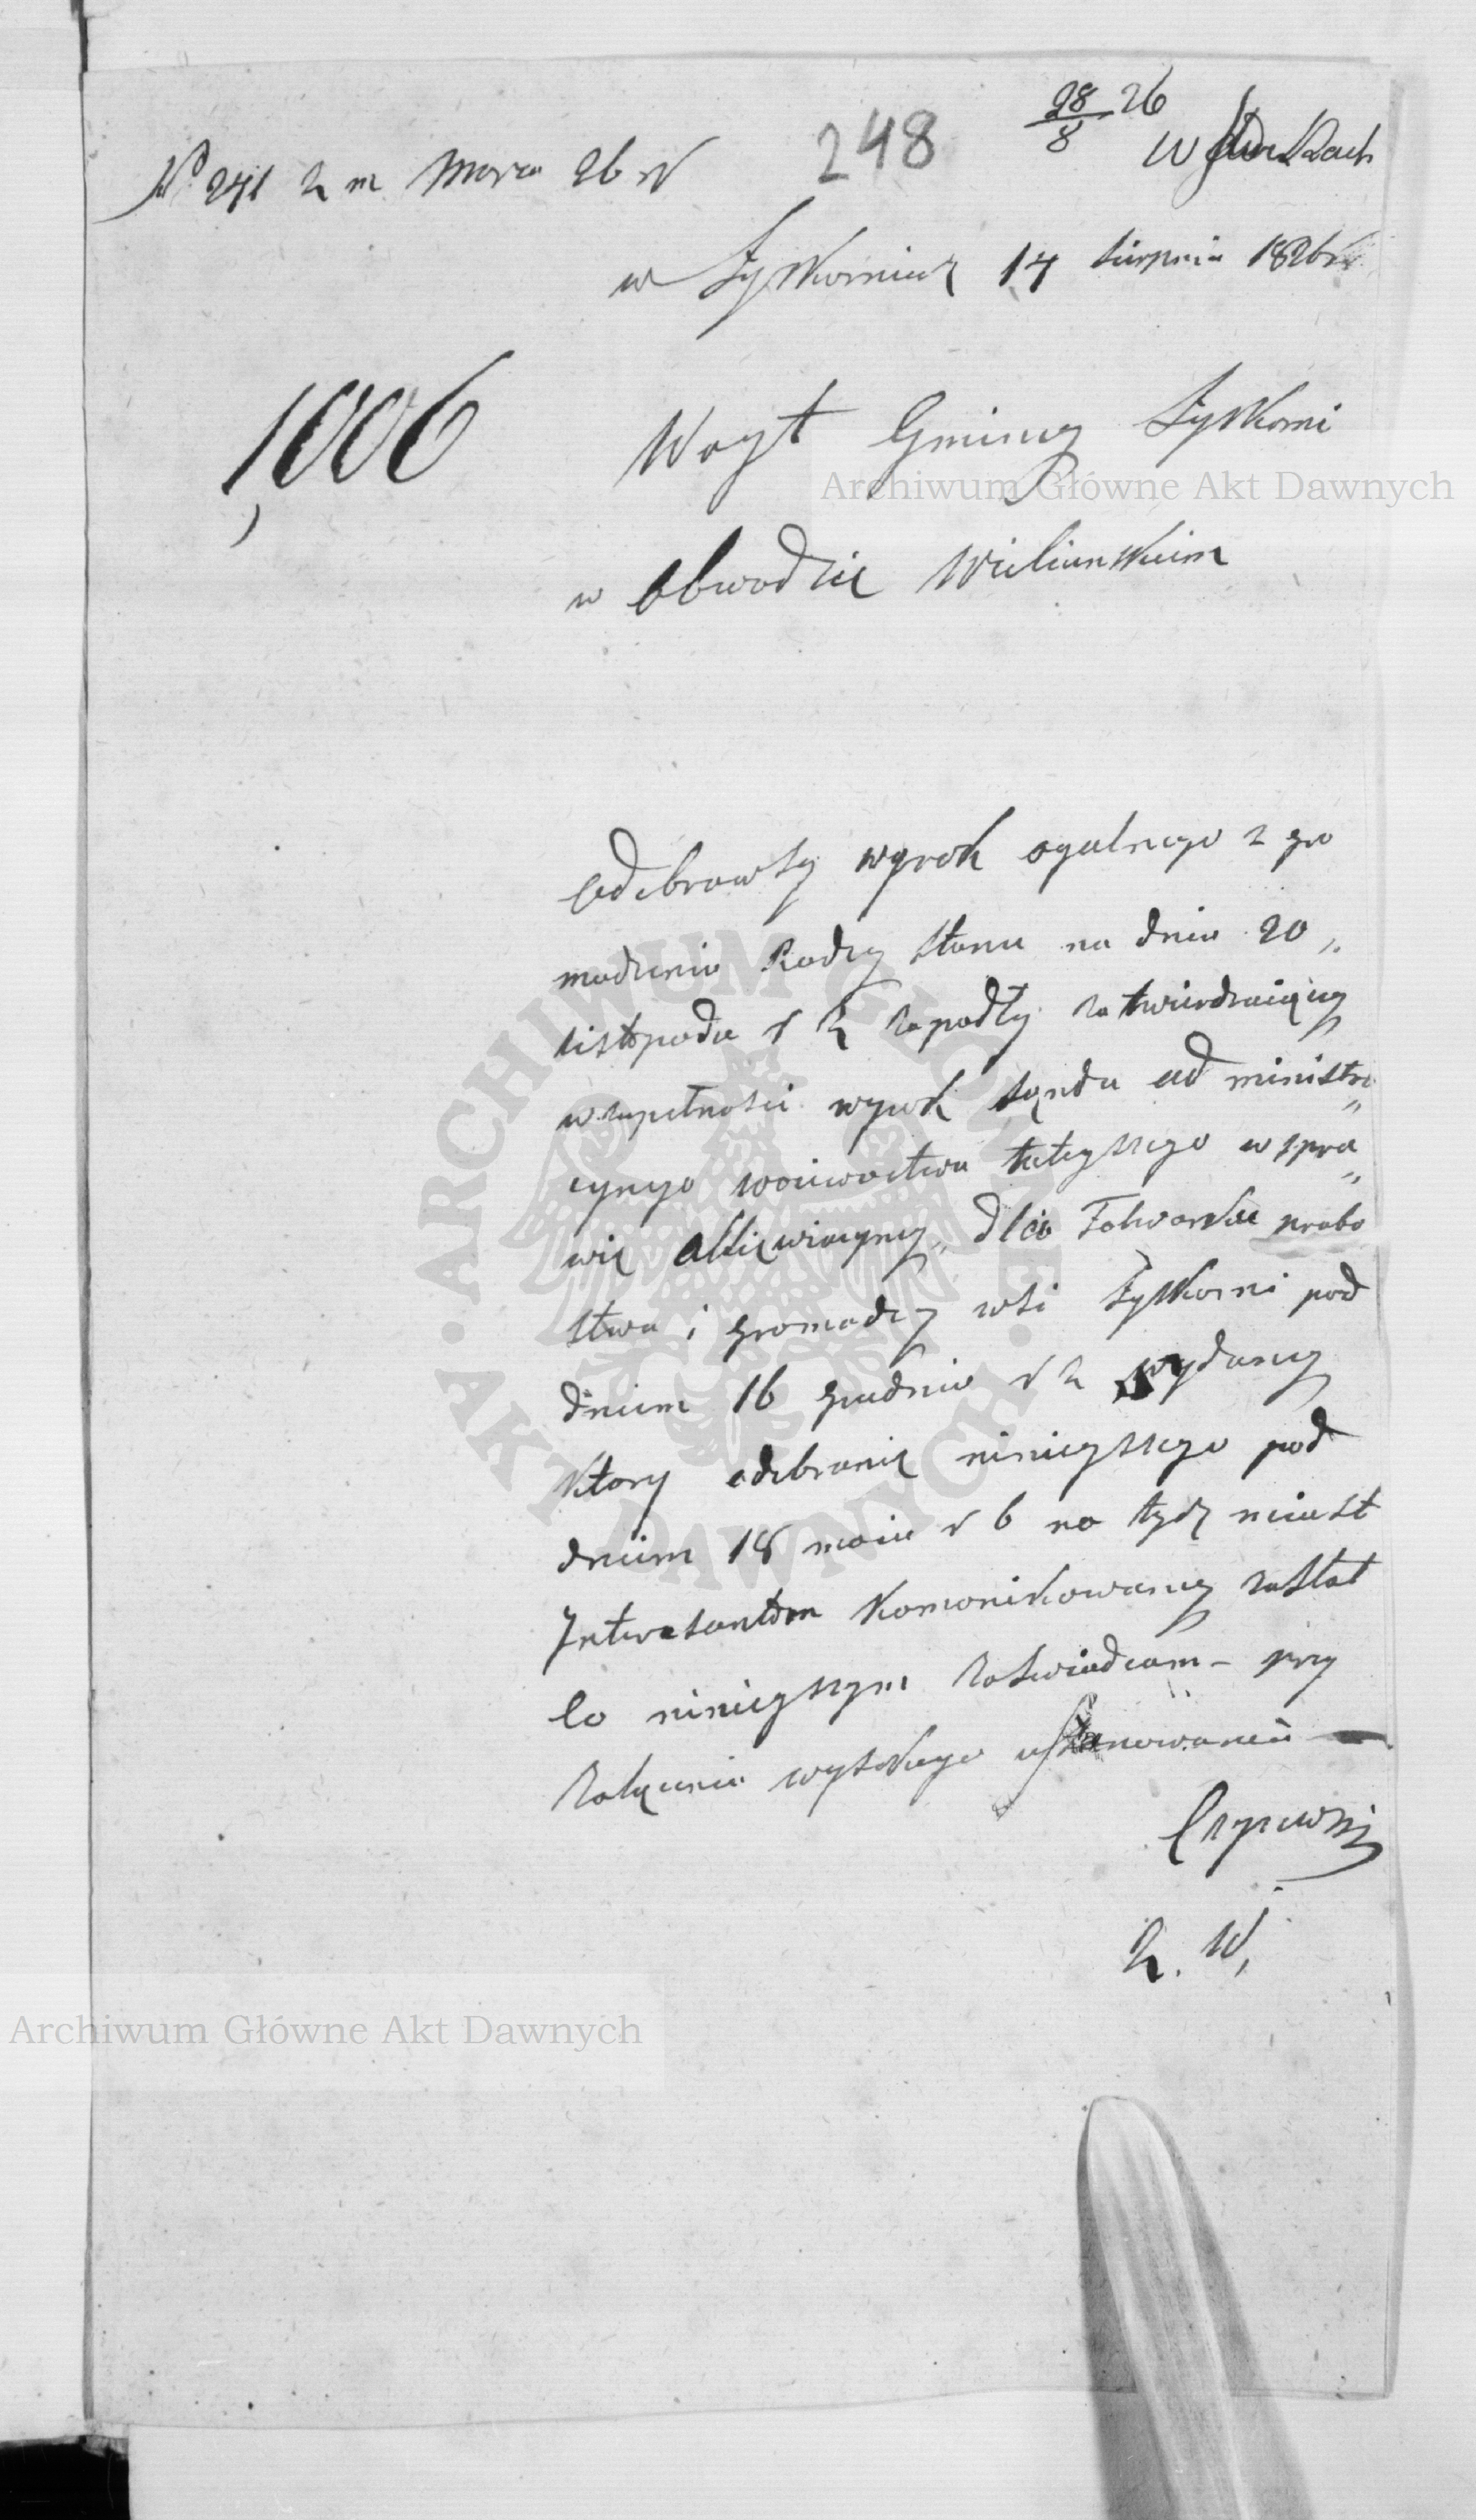 28/8 26
248
N 241 z m Marca 26 r
w Żytkowicach 14 Sierpnia 1826 r
1006
Woyt Gminy Żytkowi
w obwodzie Wieluńskim
Odebrawszy wyrok ogulnego zgro
madzenia Rady Stanu na dniu 20
Listopada r z zapadły zatwierdzaiący
w zupełnosci wyrok Sąndu administra
cynego woiewoctwa tuteyszego w spra
wie
Folwarku probo
stwa i gromady wsi pod
dniem 16 grudnia r z wydany
ktory odebranie ninieyszego pod
dniem 18 maia r b na tych miast
Interesantom komonikowany został
Co ninieyszym zaswiadcam – przy
załączeniu wysokiego uszanowania –
Z. W,
Archiwum Główne Akt Dawnych
ARCHIWUM GŁÓWNE · AKT DAWNYCH ·
Archiwum Główne Akt Dawnych